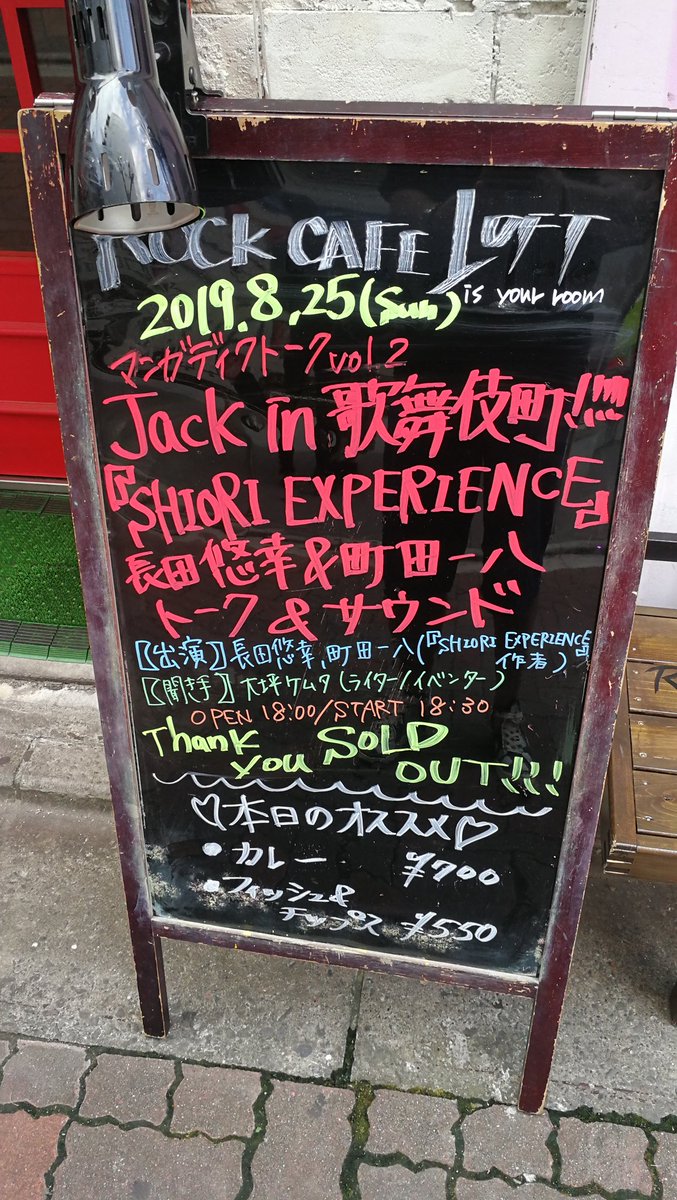 ROCK CAFE LOFT
is your room
2019.8.25(Sun)
マンガディクトークvol2
Jack in 歌舞伎町!!!!!
『SHIORI EXPERIENCE』
長田悠幸&町田一八
トーク&サウンド
【出演】長田悠幸、町田一八(『SHIORI EXPERIENCE』
作者)
【聞き手】大坪ケムタ(ライター/イベンター)
OPEN 18:00/START 18:30
Thank you SOLD OUT!!!!
♡本日のオススメ♡
・カレー ¥700
・フィッシュ&
チップス ¥550